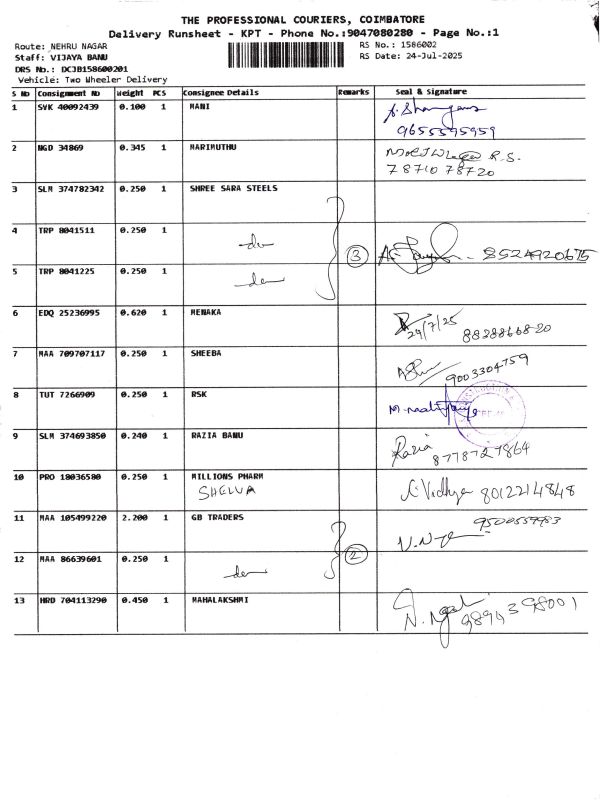 THE PROFESSIONAL COURIERS, COIMBATORE
Delivery Runsheet - KPT - Phone No.:9047080280 - Page No.:1
Route: NEHRU NAGAR RS No.: 1586002
Staff: VIJAYA BANU RS Date: 24-Jul-2025
DRS No.: DCJB158600201
Vehicle: Two Wheeler Delivery
S No Consignment No Weight PCS Consignee Details Remarks Seal & Signature
1 SVK 40092439 0.100 1 MANI
9655595959
2 NGD 34869 0.345 1 MARIMUTHU R.S.
78710 78720
3 SLM 374782342 0.250 1 SHREE SARA STEELS
4 TRP 8041511 0.250 1 do 3 8524920675
5 TRP 8041225 0.250 1 do
6 EDQ 25236995 0.620 1 MENAKA 29/7/25 8828866820
7 MAA 709707117 0.250 1 SHEEBA 9003304759
8 TUT 7266909 0.250 1 RSK
9 SLM 374693850 0.240 1 RAZIA BANU Razia
8778727864
10 PRO 18036580 0.250 1 MILLIONS PHARM
SHELVA Vidhya 8012214848
11 MAA 105499220 2.200 1 GB TRADERS 9500559983
12 MAA 86639601 0.250 1 do 2
13 HRD 704113290 0.450 1 MAHALAKSHMI 9894398001